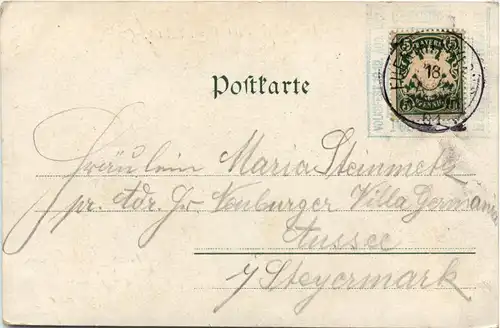 Postkarte
5 5
PFENNIG
18
Fräulein Maria Steinmetz
pr. Adr. Hr Neuburger Villa Germania
Aussee
i/Steyermark